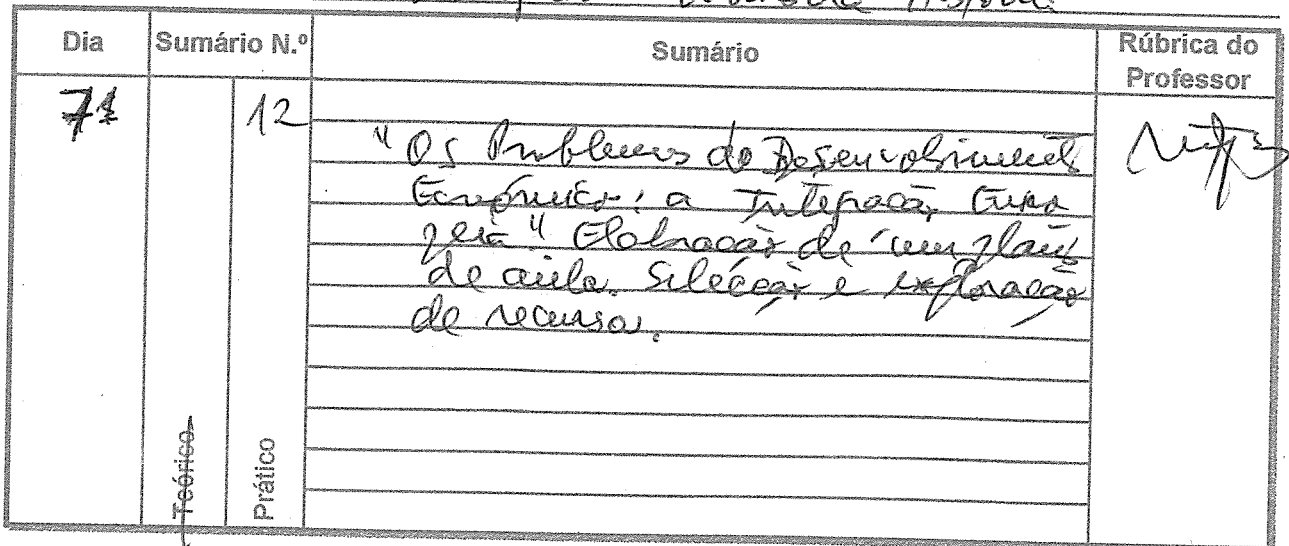 Dia Sumário N.º Sumário Rúbrica do Professor
12
"Os Problemas do Desenvolvimento
Económico: a Integração Euro
peia" Elaboração de um plano
de aula. Selecção e exploração
de recursos.
Teórico
Prático